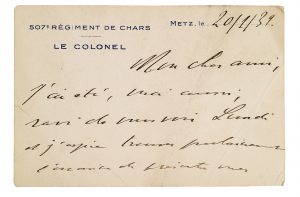 507e RÉGIMENT DE CHARS
METZ, le 20/1/39.
LE COLONEL
Mon cher ami,
j'ai été, moi aussi,
ravi de vous voir Lundi
et j'espère trouver prochainement
l'occasion de